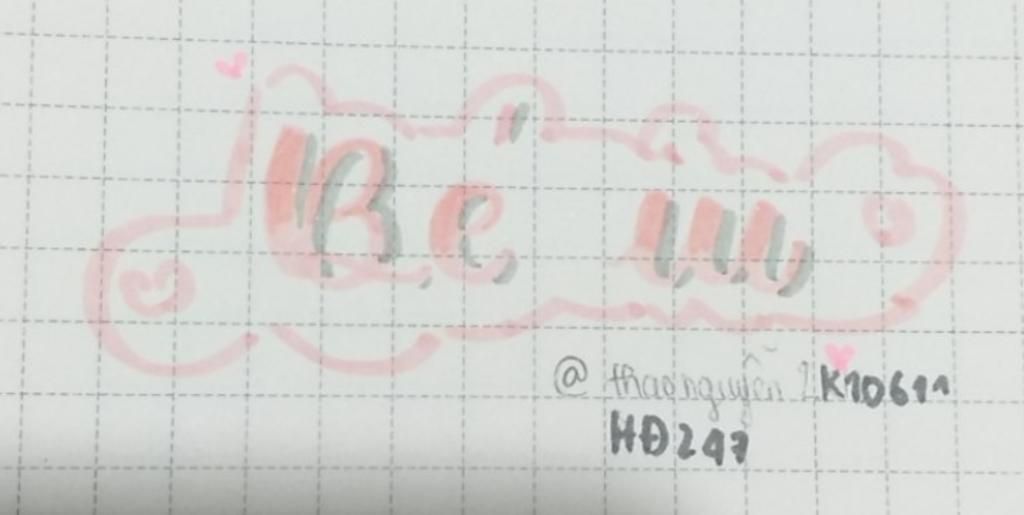 Bé iu
@thaonguyễn K10611
HĐ247